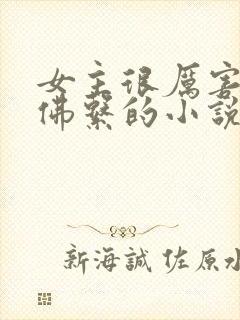 女主很厉害
佛繫的小說
新海誠 佐原水